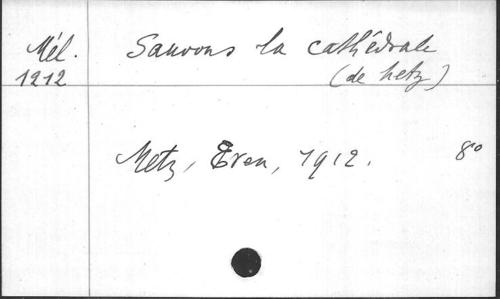 Mél.
1212
Sauvons la cathédrale
(de Metz)
Metz, Even, 1912. 8°